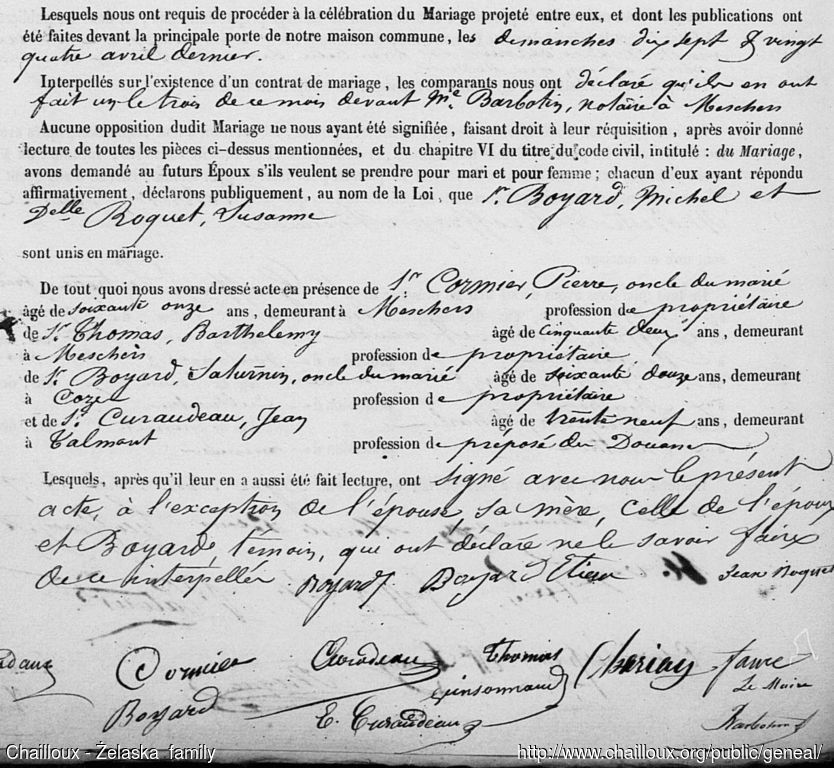 Lesquels nous ont requis de procéder à la célébration du Mariage projeté entre eux, et dont les publications ont
été faites devant la principale porte de notre maison commune, les dimanches dix sept & vingt
quatre avril dernier.
Interpellés sur l'existence d'un contrat de mariage, les comparants nous ont déclaré qu'ils en ont
fait un le trois de ce mois devant Me Barbotin, notaire à Meschers
Aucune opposition dudit Mariage ne nous ayant été signifiée, faisant droit à leur réquisition, après avoir donné
lecture de toutes les pièces ci-dessus mentionnées, et du chapitre VI du titre du code civil, intitulé : du Mariage,
avons demandé au futurs Époux s'ils veulent se prendre pour mari et pour femme ; chacun d'eux ayant répondu
affirmativement, déclarons publiquement, au nom de la Loi, que Sr Boyard, Michel et
Delle Roquet, Susanne
sont unis en mariage.
De tout quoi nous avons dressé acte en présence de Sr Cormier, Pierre, oncle du marié
âgé de soixante onze ans, demeurant à Meschers profession de propriétaire
de Sr Thomas, Barthelemy âgé de Cinquante deux ans, demeurant
à Meschers profession de propriétaire
de Sr Boyard, Saturnin, oncle du marié âgé de soixante douze ans, demeurant
à Cozes profession de propriétaire
et de Sr Curaudeau, Jean âgé de trente neuf ans, demeurant
à Talmont profession de préposé des Douanes
Lesquels, après qu'il leur en a aussi été fait lecture, ont signé avec nous le présent
acte, à l'exception de l'épouse, sa mère, Celle de l'époux
et Boyard, témoin, qui ont déclaré ne le savoir faire
de ce interpellés Boyard Boyard Jean Roquet
Cormier Curaudeau Thomas faure
Le Maire
Boyard E. Curaudeau Barbotin
Chailloux - Želaska family http://www.chailloux.org/public/geneal/